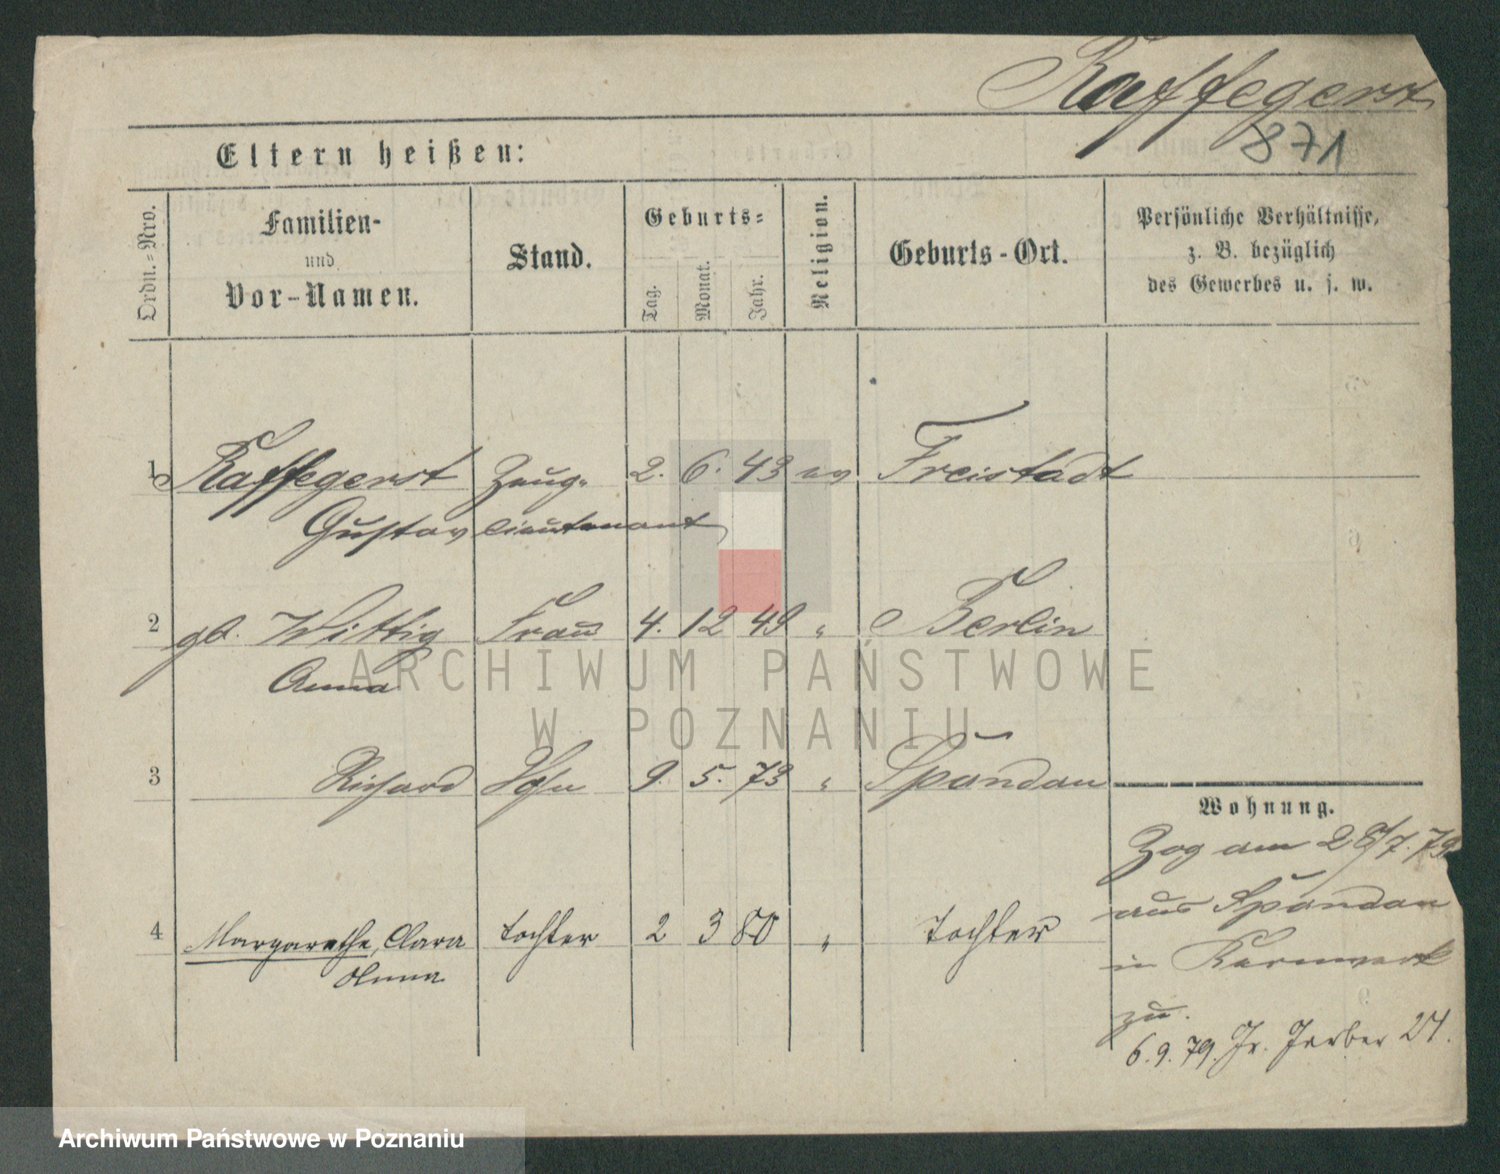 Raffegerst
871
Eltern heißen:
Ordn.-Nro.
Familien-
und
Vor-Namen.
Stand.
Geburts-
Tag.
Monat.
Jahr.
Religion.
Geburts-Ort.
Persönliche Verhältnisse,
z. B. bezüglich
des Gewerbes u. s. w.
1 Raffegerst Zeug- 2. 6. 43 ev Freistadt
Gustav lieutenant
2 gb. Wittig Frau 4. 12 49 " Berlin
Anna
3 Richard Sohn 9. 5. 73 " Spandau
Wohnung.
Zog am 28/7. 79
aus Spandau
in Kernwerk
zu.
4 Margarethe, Clara Tochter 2 3 80 " Tochter
Anna
6.9.79. Gr. Gerber 21.
ARCHIWUM PAŃSTWOWE
W POZNANIU
Archiwum Państwowe w Poznaniu